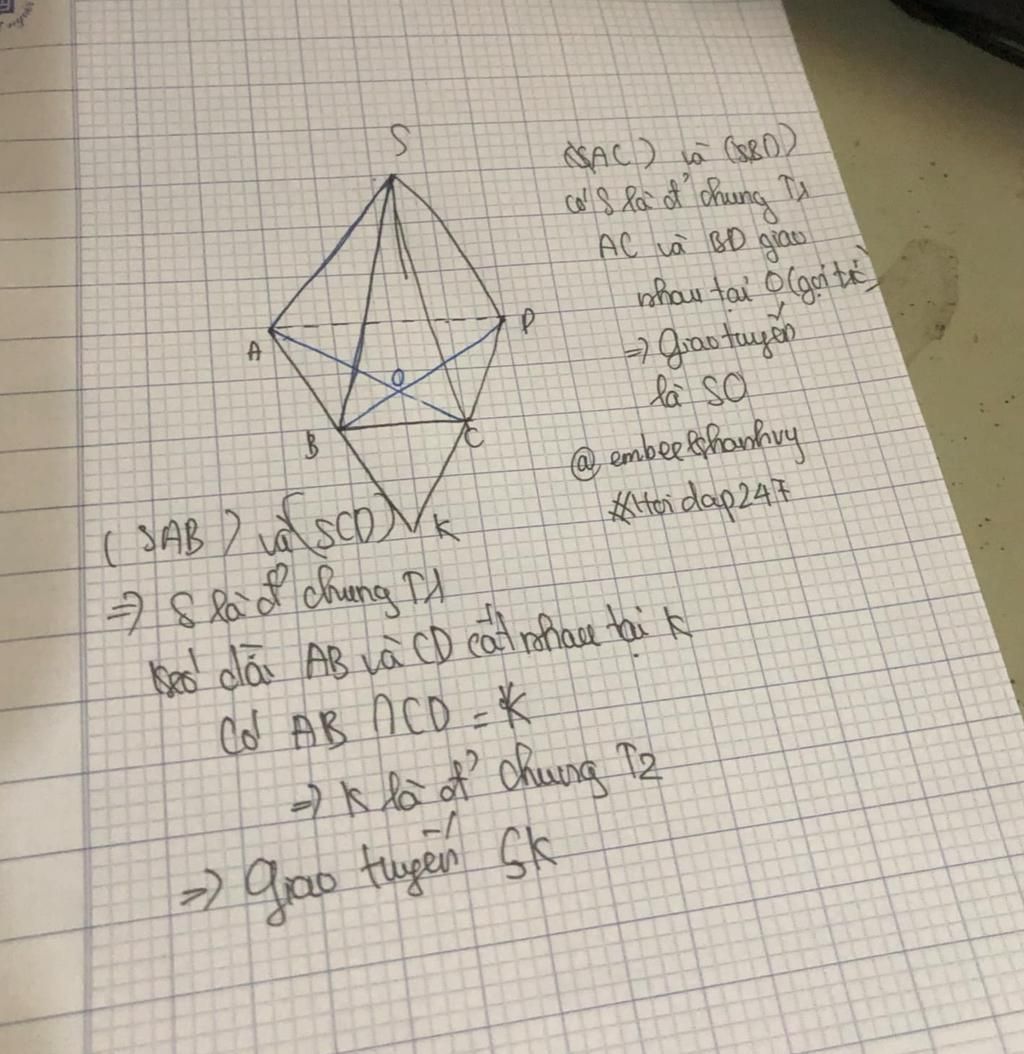 S
A
D
O
B
C
K
(SAC) và (SBD)
có S là đ' chung T1
AC và BD giao
nhau tại O (gọi tê)
=> Giao tuyến
là SO
@embeekhanhvy
#Hoidap247
(SAB) và (SCD)
=> S là đ' chung T1
kéo dài AB và CD cắt nhau tại K
Có AB ∩ CD = K
=> K là đ' chung T2
=> Giao tuyến SK